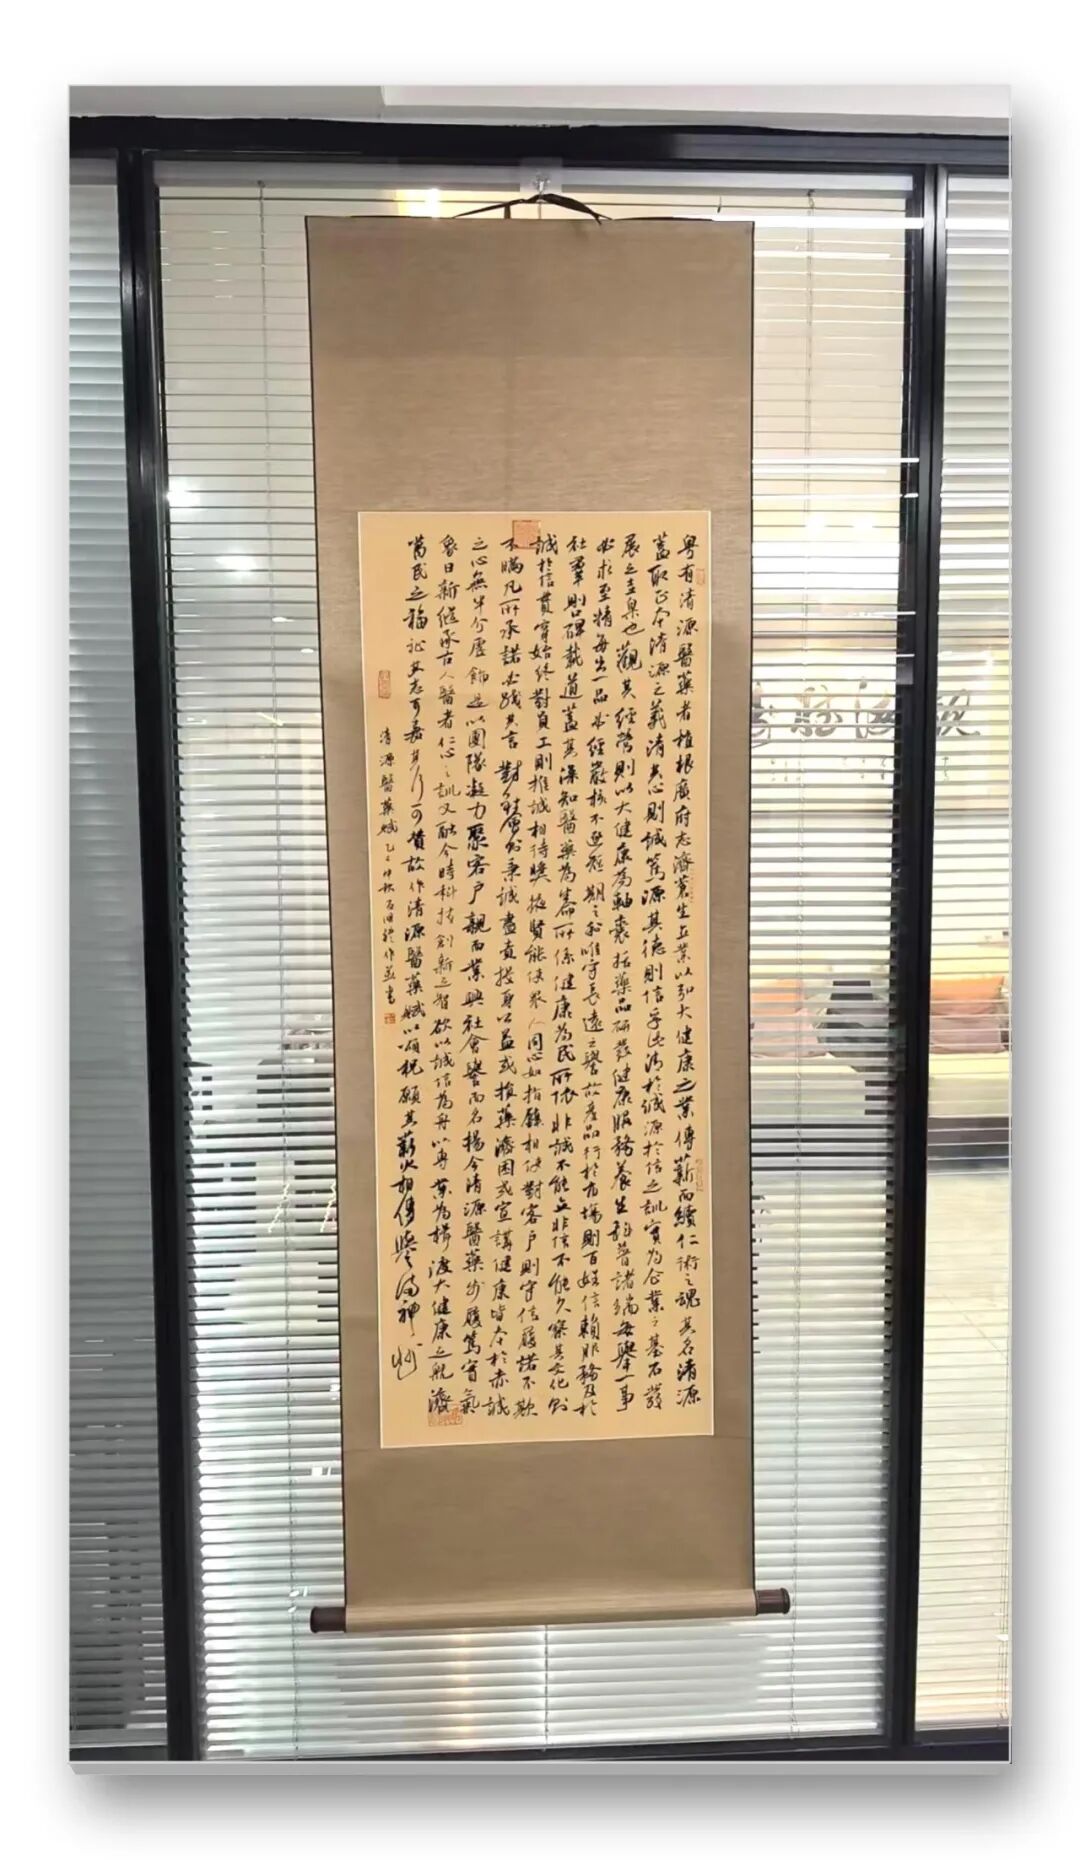 粤有清源醫藥者植根廣府志濟蒼生立業以弘大健康之業傳薪而續仁術之魂其名清源
蓋取正本清源之義清其心則誠篤源其德則信孚此清於誠源於信之訓實為企業之基石發
展之圭臬也觀其經營則以大健康為軸囊括藥品研發健康服務養生科普諸端每舉一事
必求至精每出一品必經嚴核不逐短期之利唯守長遠之譽故產品行於市場則百姓信賴服務及於
社群則口碑載道蓋其深知醫藥為生命所係健康為民所依非誠不能立非信不能久察其文化則
誠於信貫穿始終對員工則推誠相待獎掖賢能使眾人同心如指臂相使對客戶則守信履諾不欺
不瞞凡所承諾必踐其言對社會則秉誠盡責投身公益或捐藥濟困或宣講健康皆本於赤誠
之心無半分虛飾是以團隊凝力聚客戶親而業興社會譽而名揚今清源醫藥步履篤實氣
象日新繼承古人醫者仁心之訓又融今時科技創新之智欲以誠信為舟以專業為楫渡大健康之航濟
萬民之福祉其志可嘉其行可贊故作清源醫藥賦以頌祝願其薪火相傳譽滿神州
清源醫藥賦乙巳仲秋
作並書